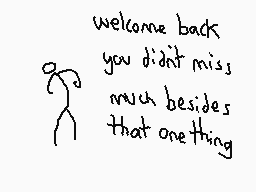 welcome back
you didn't miss
much besides
that one thing